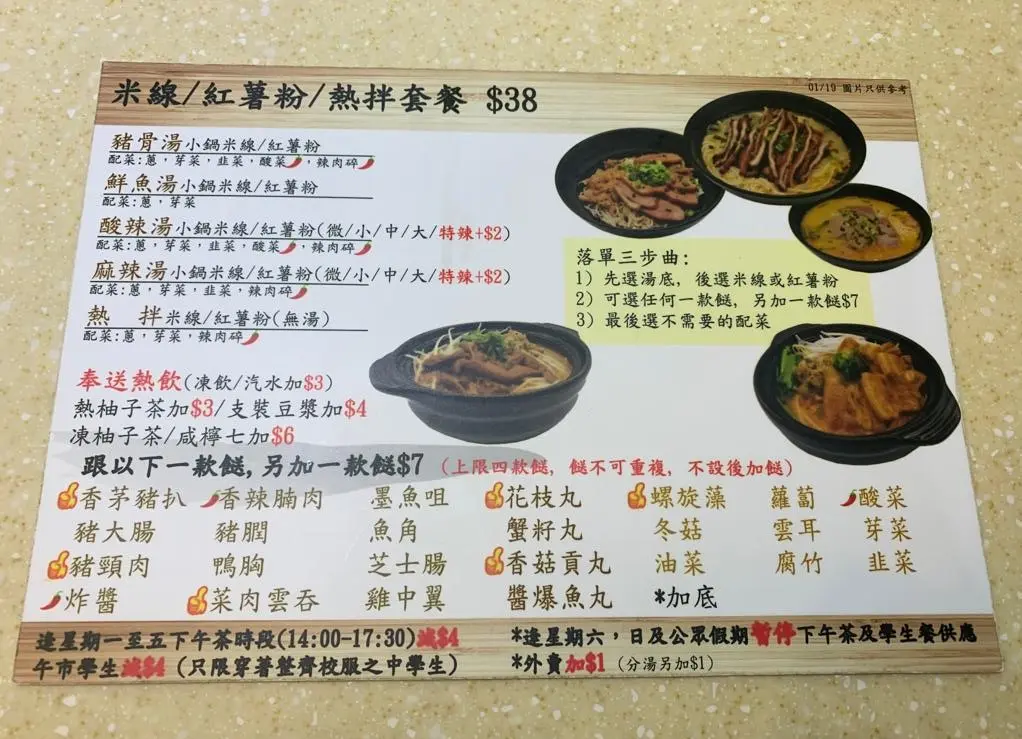 米線/紅薯粉/熱拌套餐 $38
01/19 圖片只供參考
豬骨湯小鍋米線/紅薯粉
配菜:蔥，芽菜，韭菜，酸菜，辣肉碎
鮮魚湯小鍋米線/紅薯粉
配菜:蔥，芽菜
酸辣湯小鍋米線/紅薯粉(微/小/中/大/特辣+$2)
配菜:蔥，芽菜，韭菜，酸菜，辣肉碎
麻辣湯小鍋米線/紅薯粉(微/小/中/大/特辣+$2)
配菜:蔥，芽菜，韭菜，辣肉碎
熱 拌米線/紅薯粉(無湯)
配菜:蔥，芽菜，辣肉碎
落單三步曲:
1) 先選湯底, 後選米線或紅薯粉
2) 可選任何一款餸, 另加一款餸$7
3) 最後選不需要的配菜
奉送熱飲(凍飲/汽水加$3)
熱柚子茶加$3/支裝豆漿加$4
凍柚子茶/咸檸七加$6
跟以下一款餸,另加一款餸$7 (上限四款餸, 餸不可重複, 不設後加餸)
香茅豬扒 香辣腩肉 墨魚咀 花枝丸 螺旋藻 蘿蔔 酸菜
豬大腸 豬膶 魚角 蟹籽丸 冬菇 雲耳 芽菜
豬頸肉 鴨胸 芝士腸 香菇貢丸 油菜 腐竹 韭菜
炸醬 菜肉雲吞 雞中翼 醬爆魚丸 *加底
逢星期一至五下午茶時段(14:00-17:30)減$4
午市學生減$4 (只限穿著整齊校服之中學生)
*逢星期六，日及公眾假期暫停下午茶及學生餐供應
*外賣加$1 (分湯另加$1)